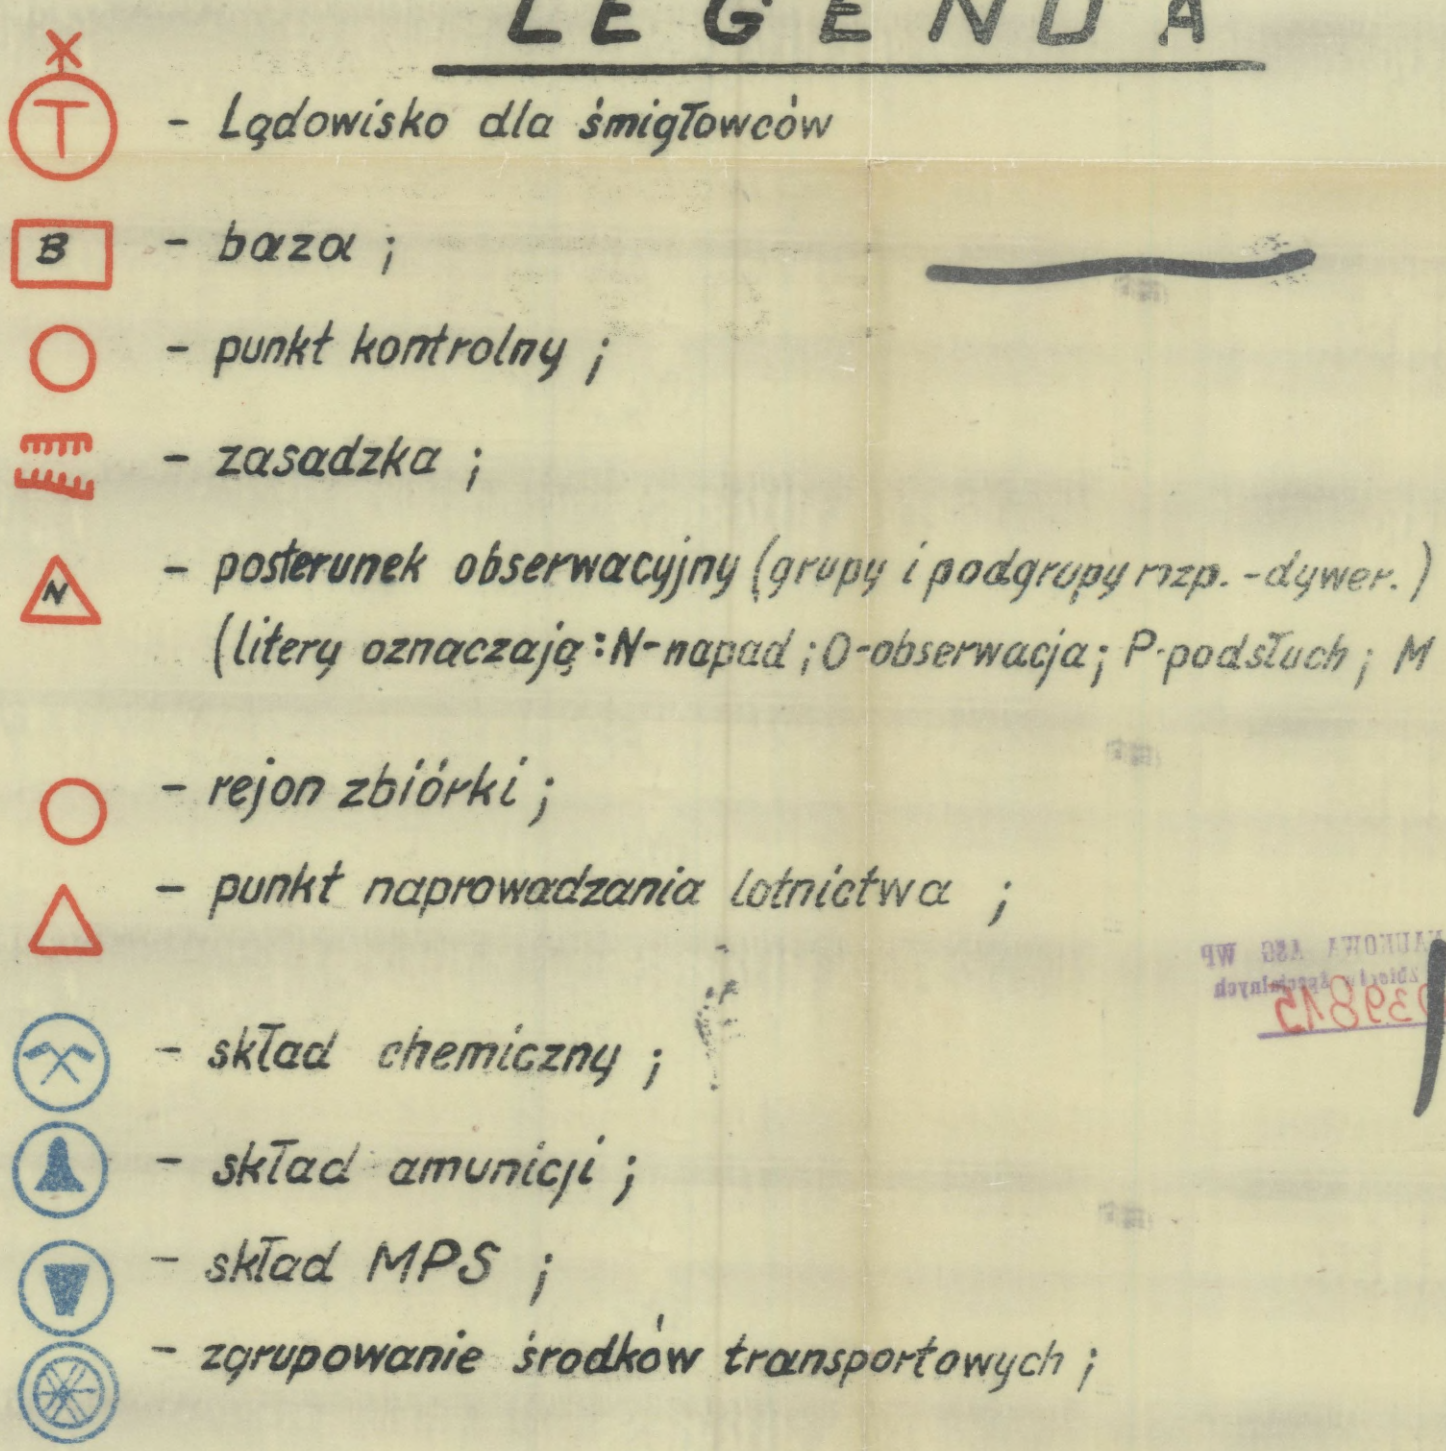 LEGENDA
T - Lądowisko dla śmigłowców
B - baza ;
- punkt kontrolny ;
- zasadzka ;
N - posterunek obserwacyjny (grupy i podgrupy rozp. - dywer.)
(litery oznaczają: N-napad ; O-obserwacja ; P-podsłuch ; M
- rejon zbiórki ;
- punkt naprowadzania lotnictwa ;
NAUKOWA ASG WP
zbiorów specjalnych
039815
- skład chemiczny ;
- skład amunicji ;
- skład MPS ;
- zgrupowanie środków transportowych ;